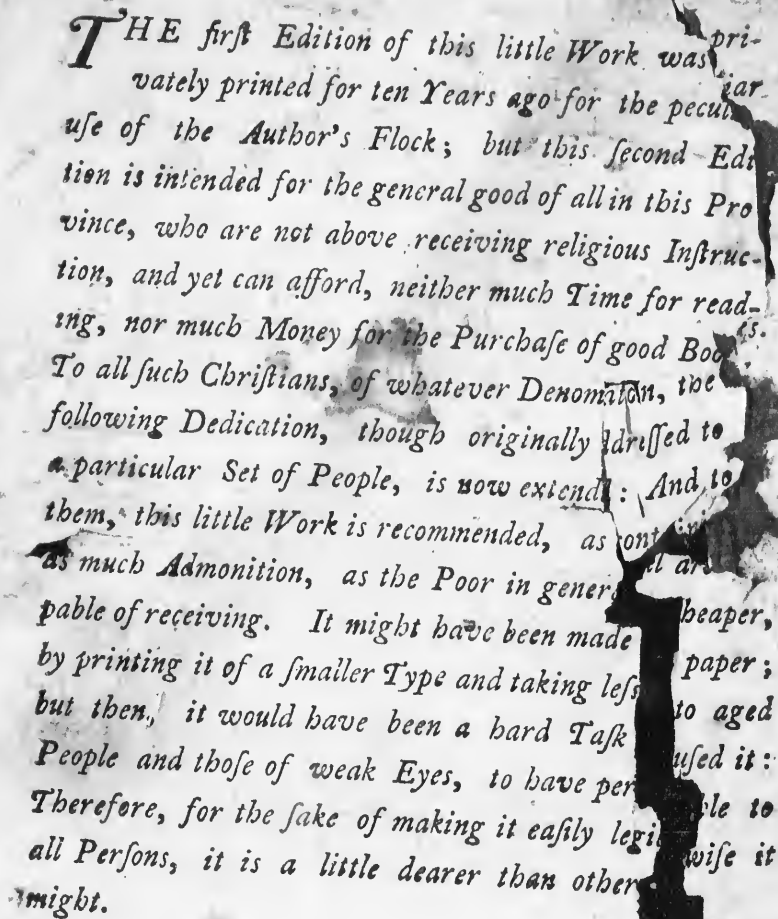 THE firſt Edition of this little Work was pri-
vately printed for ten Years ago for the peculiar
uſe of the Author's Flock; but this ſecond Edi
tion is intended for the general good of all in this Pro
vince, who are not above receiving religious Inſtruc-
tion, and yet can afford, neither much Time for read-
ing, nor much Money for the Purchaſe of good Boo s.
To all ſuch Chriſtians, of whatever Denomi on, the
following Dedication, though originally ddreſſed to
a particular Set of People, is now extend : And to
them, this little Work is recommended, as cont
as much Admonition, as the Poor in genera ll are
pable of receiving. It might have been made heaper,
by printing it of a ſmaller Type and taking leſs paper;
but then, it would have been a hard Taſk to aged
People and thoſe of weak Eyes, to have per uſed it:
Therefore, for the ſake of making it eaſily legi ble to
all Perſons, it is a little dearer than other wiſe it
might.